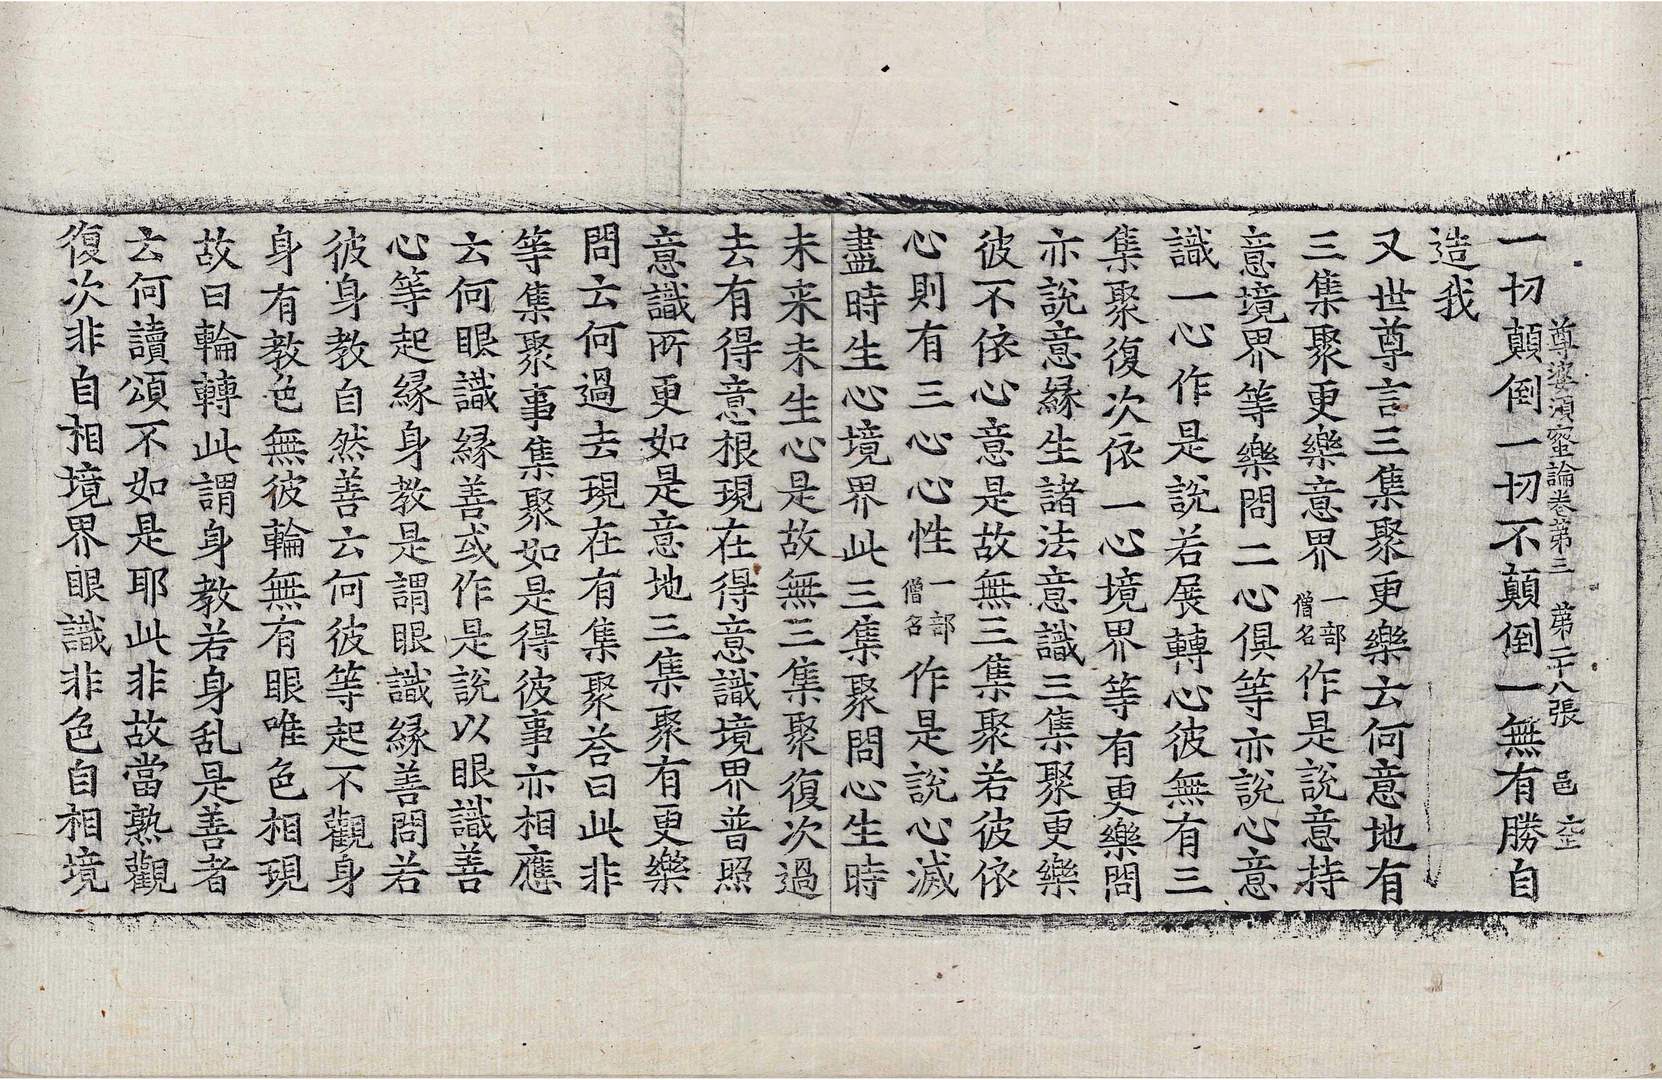 尊婆須蜜論卷第三　第二十八張　邑
一切顛倒一切不顛倒一無有勝自
造我
又世尊言三集聚更樂云何意地有
三集聚更樂意界一部僧名作是說意持
意境界等樂問二心俱等亦說心意
識一心作是說若展轉心彼無有三
集聚復次依一心境界等有更樂問
亦說意緣生諸法意識三集聚更樂
彼不依心意是故無三集聚若彼依
心則有三心心性一部僧名作是說心滅
盡時生心境界此三集聚問心生時
未来未生心是故無三集聚復次過
去有得意根現在得意識境界普照
意識所更如是意地三集聚有更樂
問云何過去現在有集聚荅曰此非
等集聚事集聚如是得彼事亦相應
云何眼識緣善或作是說以眼識善
心等起緣身教是謂眼識緣善問若
彼身教自然善云何彼等起不觀身
身有教色無彼輪無有眼唯色相現
故曰輪轉此謂身教若身乱是善者
云何讀頌不如是耶此非故當熟觀
復次非自相境界眼識非色自相境